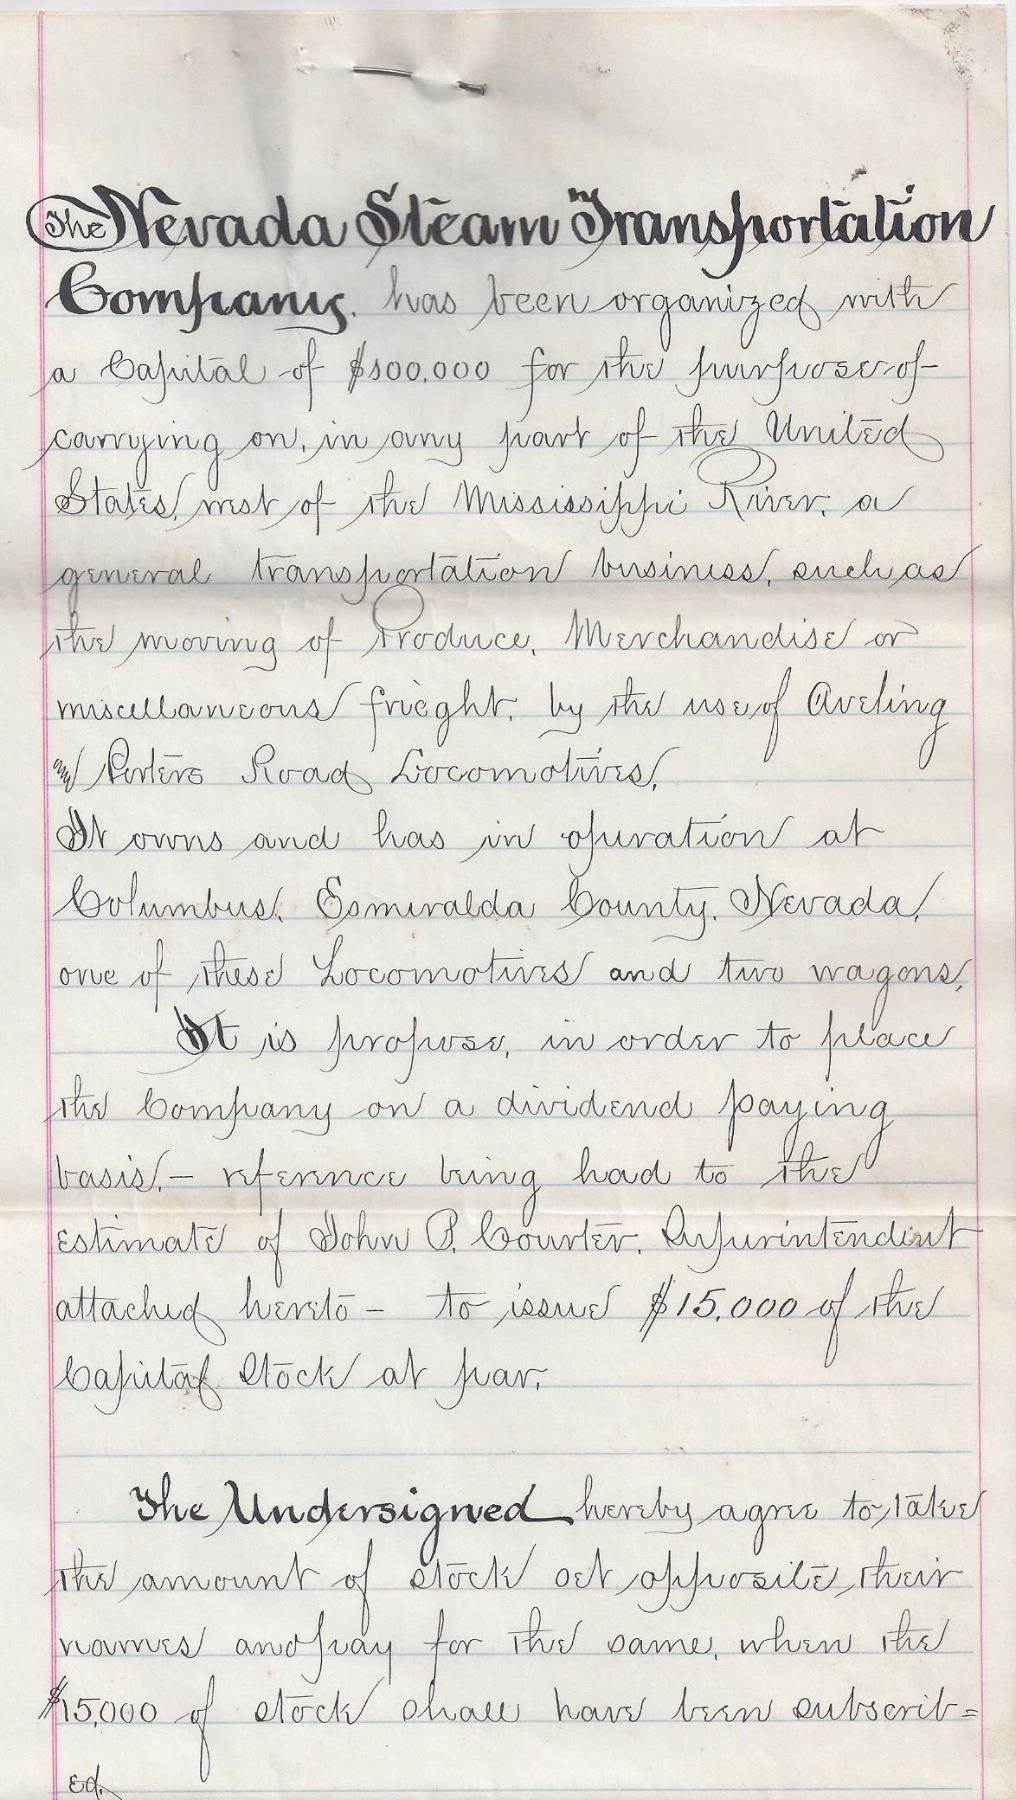 The Nevada Steam Transportation
Company. has been organized with
a Capital of $100.000 for the purpose of
carrying on, in any part of the United
States, west of the Mississippi River, a
general transportation business, such as
the moving of Produce, Merchandise or
miscellaneous frieght, by the use of Aveling
and Porters Road Locomotives,
It owns and has in operation at
Columbus, Esmeralda County, Nevada,
one of these Locomotives and two wagons,
It is propose, in order to place
the Company on a dividend paying
basis, - reference being had to the
estimate of John P. Courter, Superintendent
attached hereto - to issue $15,000 of the
Capital Stock at par,
The Undersigned hereby agree to take
the amount of stock set opposite their
names and pay for the same, when the
$15,000 of stock shall have been subscrib=
ed,